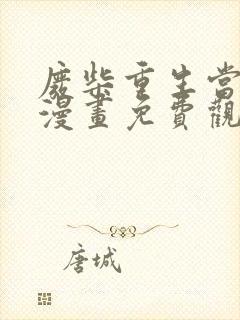 廢柴重生當
漫畫免費觀
唐城